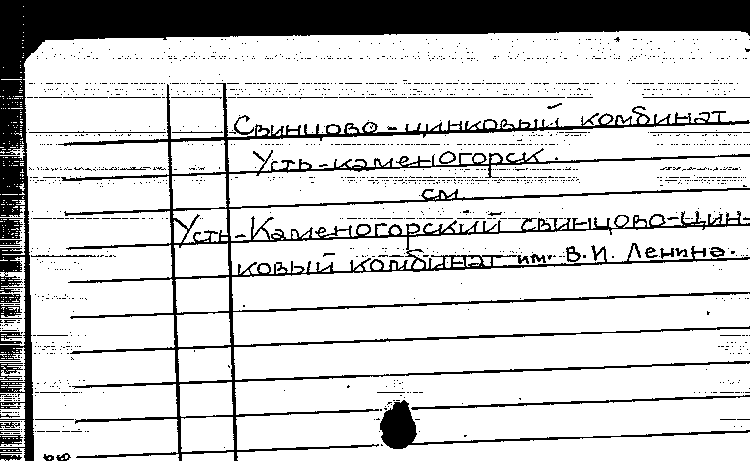 Свинцово-цинковый комбинат
Усть-каменогорск.
см.
Усть-Каменогорский свинцово-цин-
ковый комбинат им. В.И. Ленина.